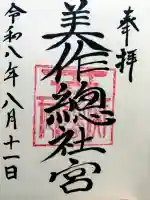 奉拝
美作總社宮
令和八年八月十一日